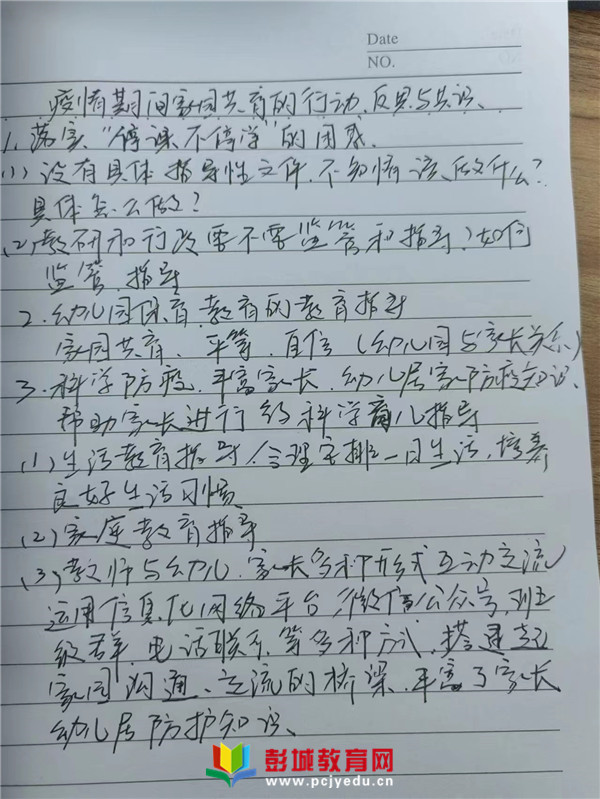 Date
NO.
疫情期间家园共育的行动、反思与共识、
1、落实“停课不停学”的困惑、
(1)没有具体指导性文件、不知情该做什么?
具体怎么做?
(2)教研和行政要不要监管和指导?如何
监管、指导
2、幼儿园保育、教育的教育指导
家园共育、平等、自信(幼儿园与家长关系)
3、科学防疫、丰富家长、幼儿居家防疫知识、
帮助家长进行的科学育儿指导
(1)生活教育指导、合理安排一日生活、培养
良好生活习惯
(2)家庭教育指导
(3)教师与幼儿、家长多种形式互动交流
运用信息化网络平台/微信公众号,班
级群、电话联系等多种方式、搭建起
家园沟通、交流的桥梁、丰富了家长
幼儿居防护知识、
彭城教育网
www.pcjyedu.cn